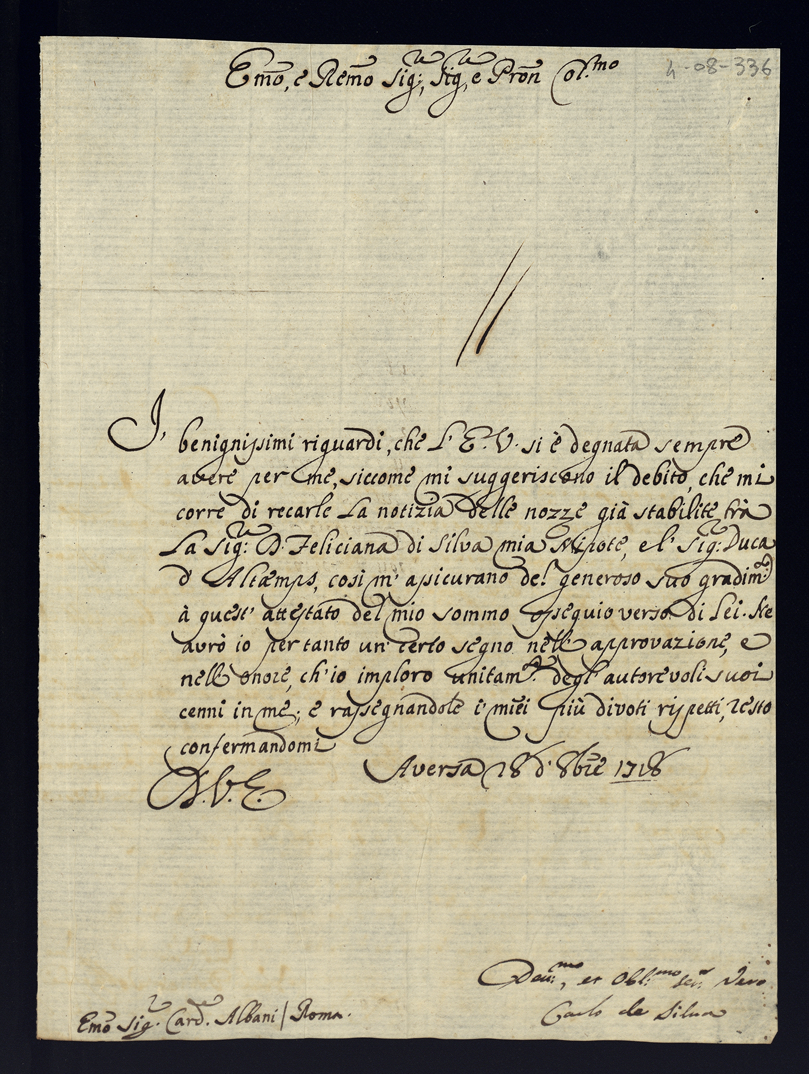 Emo, e Remo Sig:re, Sig:re e Pron Col.mo
4-08-336
I' benignissimi riguardi, che L'E. V. si è degnata sempre
avere per me, siccome mi suggeriscono il debito, che mi
corre di recarle la notizia delle nozze già stabilite trà
la Sig:ra D. Feliciana di Silva mia Nipote, e l' Sig:r Duca
d' Altæmps, così m' assicurano del generoso suo gradim:o
à quest' attestato del mio sommo ossequio verso di Lei. Ne
avrò io per tanto un' certo segno nell' approvazione, e
nell' onore, ch'io imploro unitam.te degl' autorevoli suoi
cenni in me; e rassegnandole i' miei più divoti rispetti, resto
confermandomi
D. V. E.
Aversa 18 d' 8bre 1718
Emo Sig.re Card.le Albani / Roma.
Dev:mo, et Obl:mo Ser.r Vero
Carlo de Silva